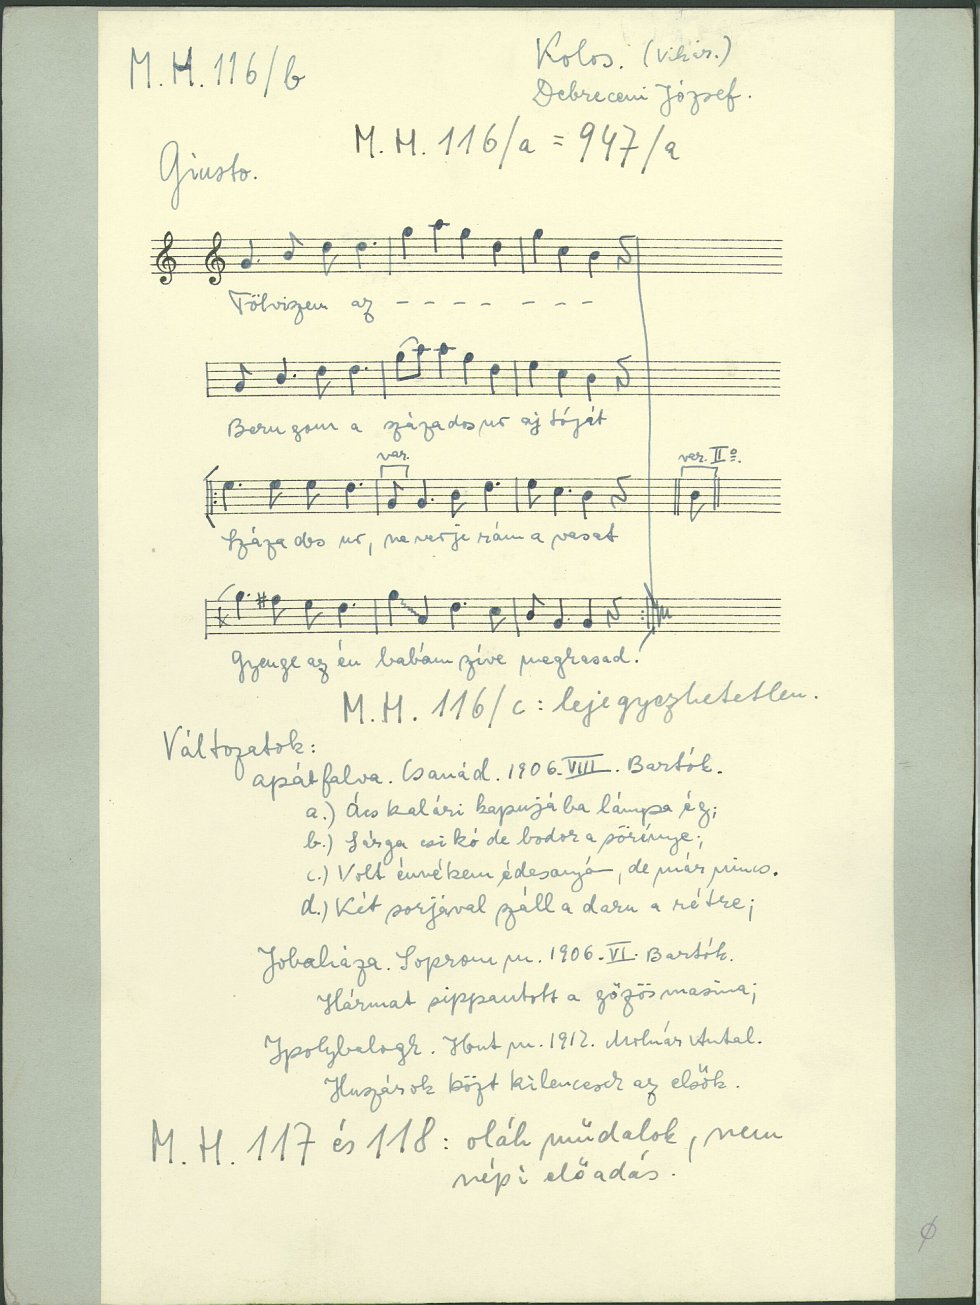 M. H. 116/b
Kolos. (Vikár.)
Debreceni József.
M. H. 116/a = 947/a
Giusto.
Fölviszem az – – – – – – –
Beru gom a százados ur ajtóját
var.
var. II°.
Százados ur, ne verje rám a vasat
Gyenge az én babám szíve megrasad.
M. H. 116/c : lejegyezhetetlen.
Változatok:
apátfalva. Csanád. 1906. VIII. Bartók.
a.) Ács kalári kapujába lámpa ég;
b.) Sárga csikó de bodor a sörénye;
c.) Volt énnékem édesanyám, de már nincs.
d.) Két sorjával száll a daru a rétre;
Jobaháza. Sopron m. 1906. VI. Bartók.
Hármat sippantott a gőzös masina;
Ipolybalogh. Hont m. 1912. Molnár Antal.
Huszárok közt kilencesek az elsők.
M. H. 117 és 118: oláh műdalok, nem
népi előadás.